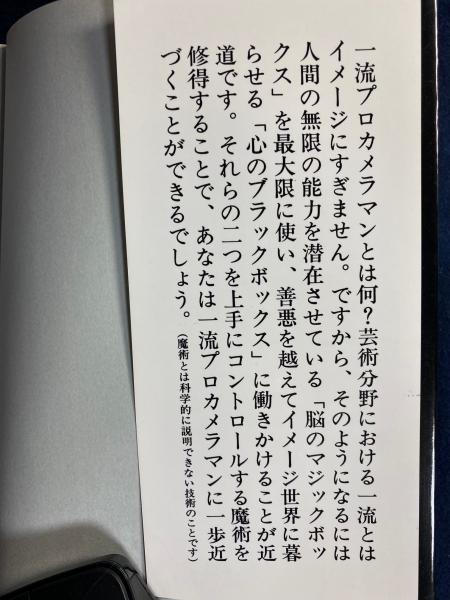 一流プロカメラマンとは何？芸術分野における一流とは
イメージにすぎません。ですから、そのようになるには
人間の無限の能力を潜在させている「脳のマジックボッ
クス」を最大限に使い、善悪を越えてイメージ世界に暮
らせる「心のブラックボックス」に働きかけることが近
道です。それらの二つを上手にコントロールする魔術を
修得することで、あなたは一流プロカメラマンに一歩近
づくことができるでしょう。（魔術とは科学的に説明できない技術のことです）